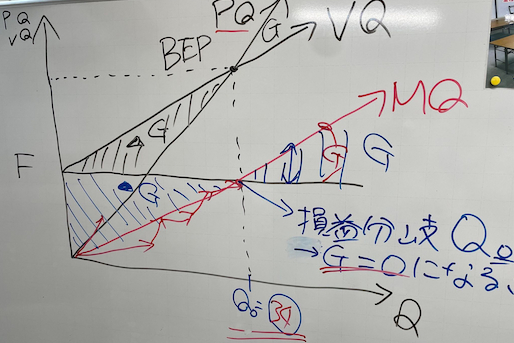 PQ
VQ
PQ
G
VQ
BEP
MQ
G
F
G
G
G
損益分岐 Q₀
→G=0になる、
Q₀=34
Q